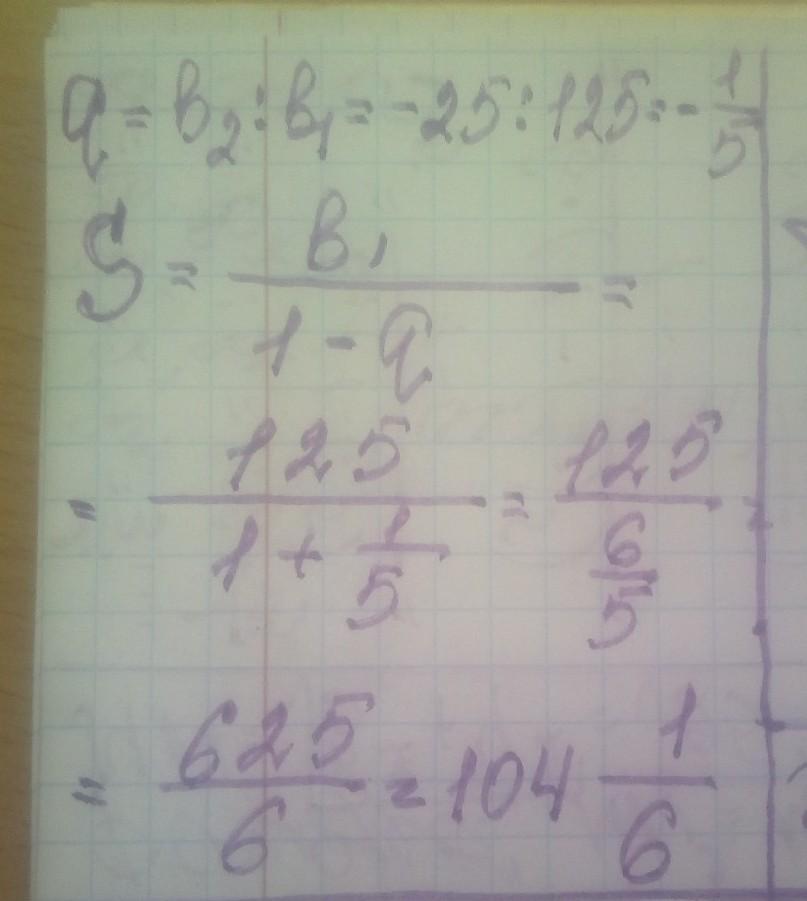 q = b₂ : b₁ = -25 : 125 = - 1/5
S = b₁/(1 - q) =
= 125/(1 + 1/5) = 125/(6/5) =
= 625/6 = 104 1/6